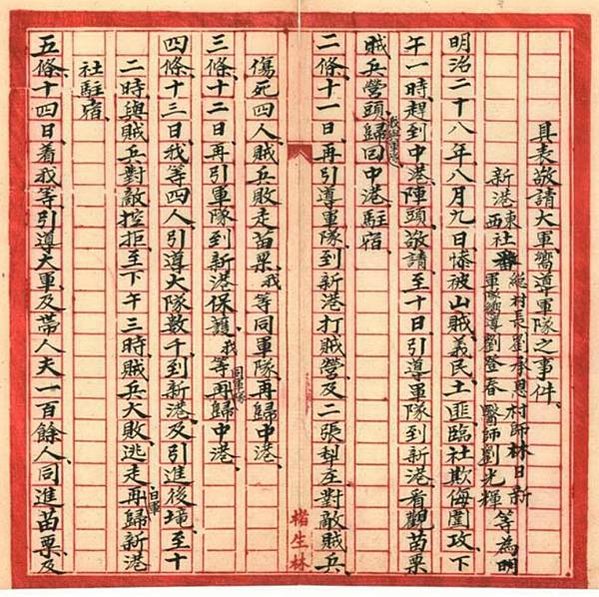 具表敬請大軍嚮導軍隊之事件、
新港東西社
總村長劉承恩村師林日新
軍隊嚮導劉登春醫師劉光輝
等為明
明治二十八年八月九日慘被山賊、義民、土匪臨社欺侮圍攻、下
午一時趕到中港陣頭敬請、至十日引導軍隊到新港看觀苗栗
賊兵營頭、歸回中港駐宿
二條、十一日、再引導軍隊、到新港打賊營及二張犁庄對敵賊兵、
楮生林
傷死四人、賊兵敗走苗栗、我等同軍隊再歸中港、
三條、十二日、再引軍隊到新港保護、我等同軍隊再歸中港、
四條、十三日、我等四人引導大隊數千到新港、及引進後壠、至十
二時與賊兵對敵控拒至下午三時、賊兵大敗逃走、日軍再歸新港
社駐宿、
五條、十四日、着我等、引導大軍、及帶人夫一百餘人、同進苗栗、及